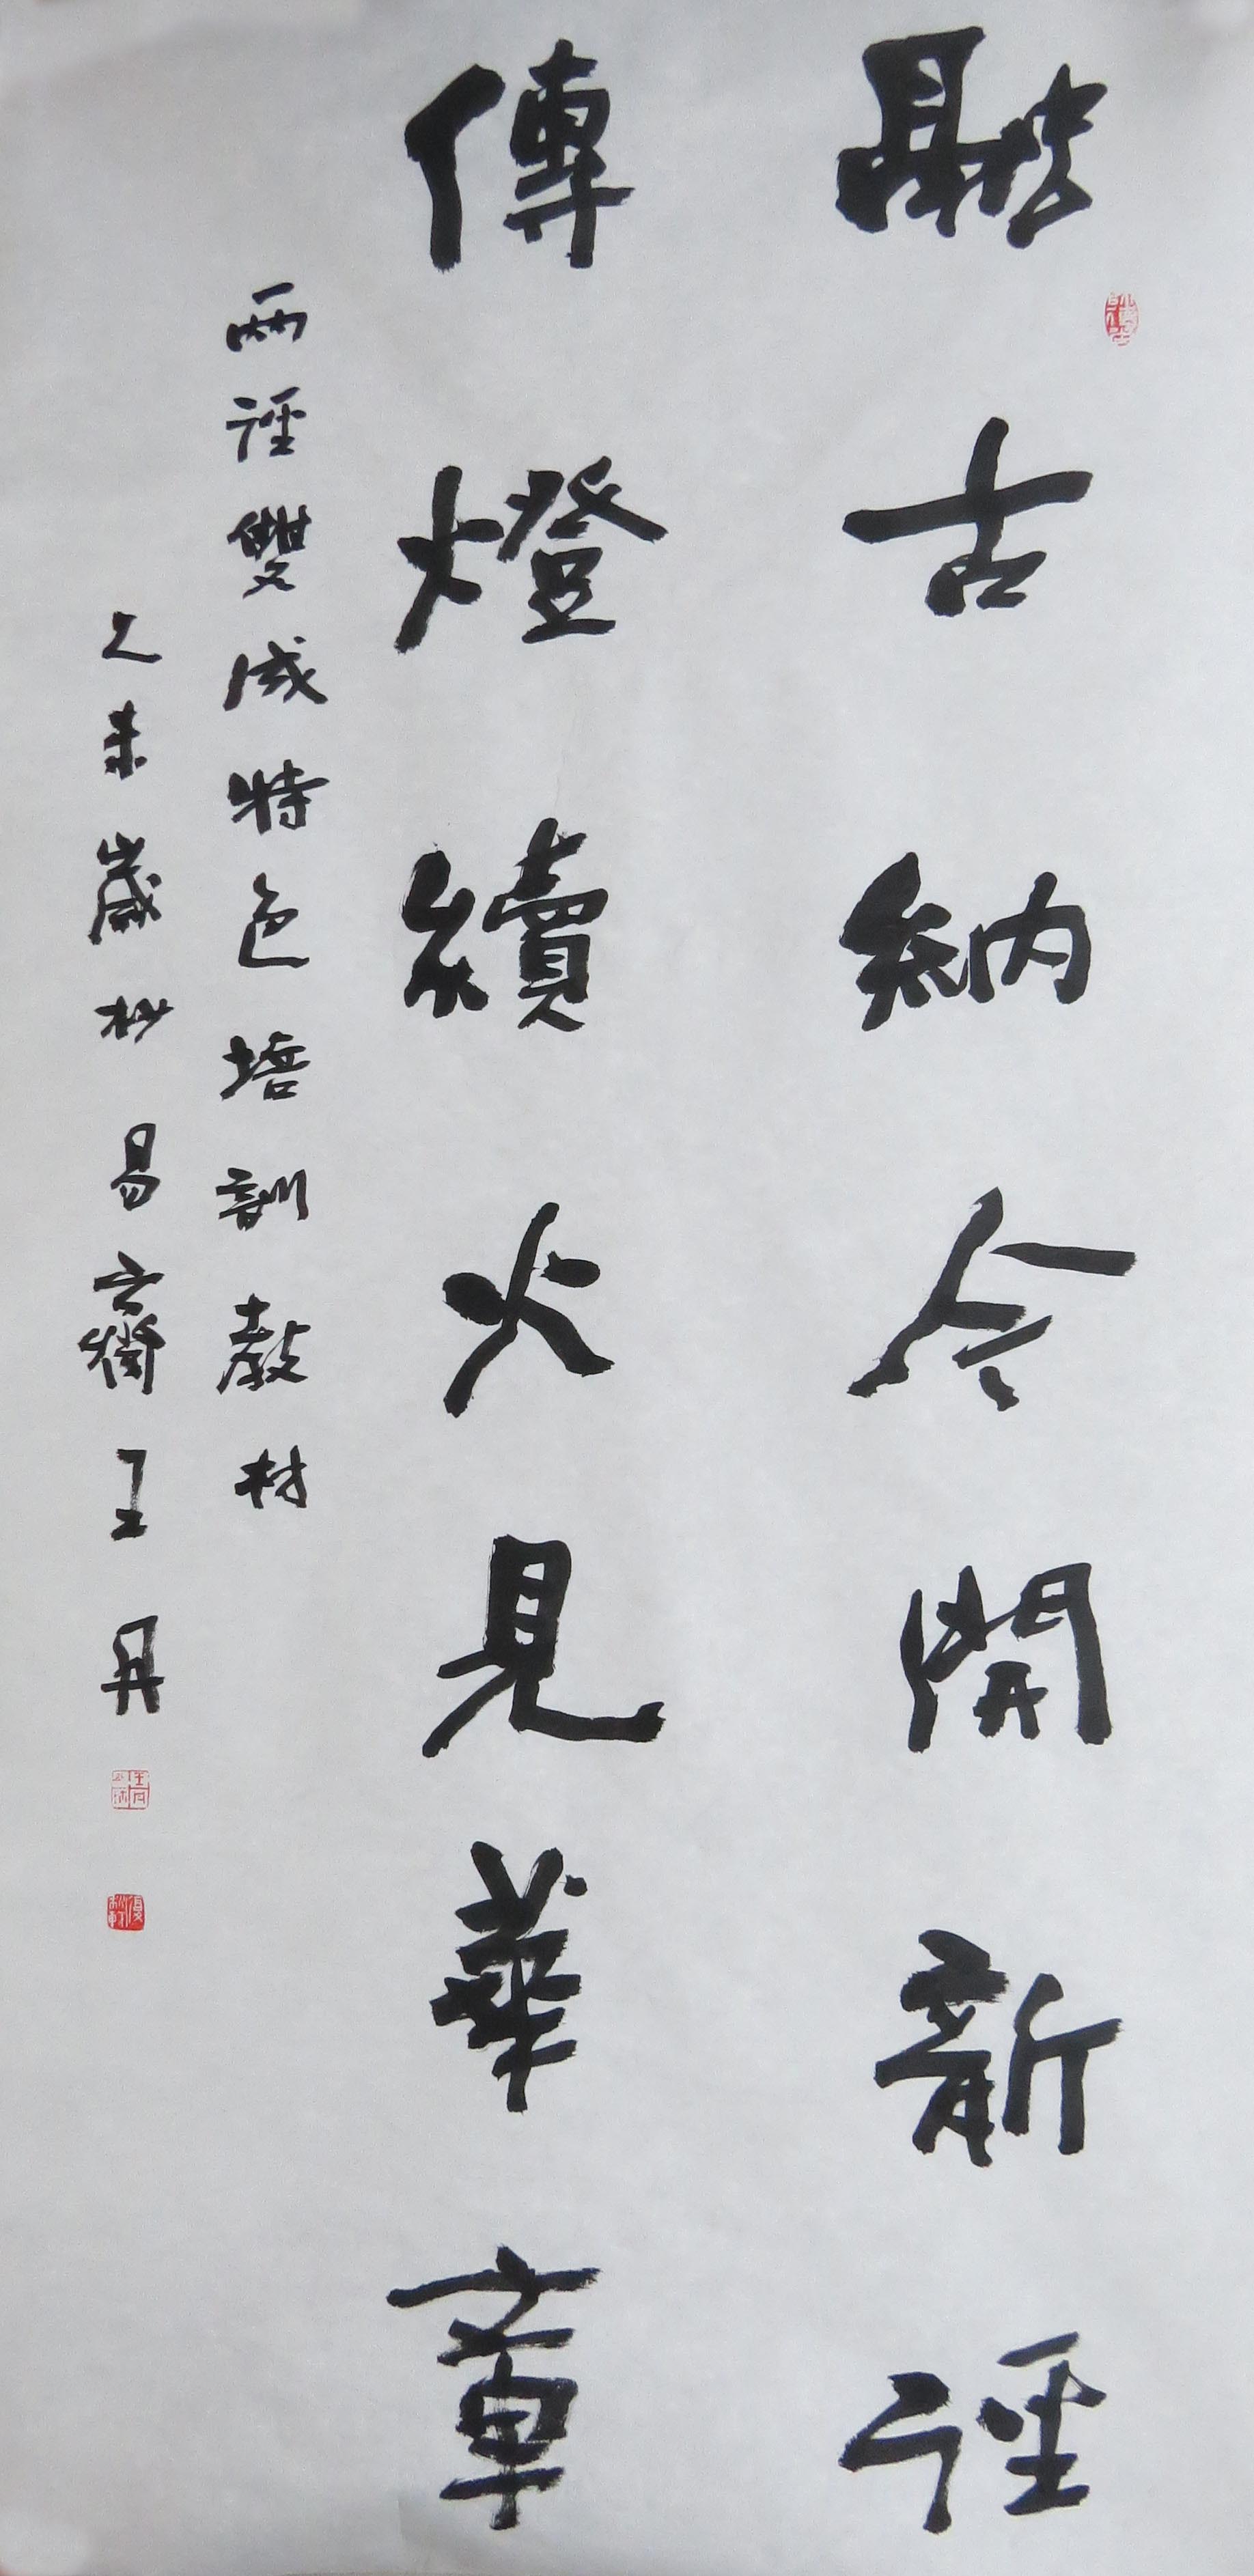 融古納今開新徑
傳燈續火見華章
兩徑雙成特色培訓教材
乙未歲杪易齋王丹